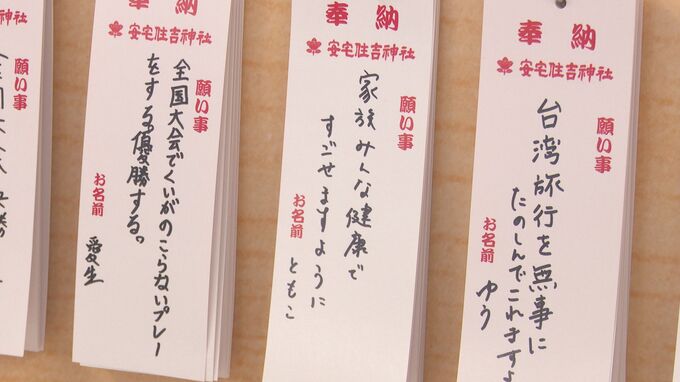 奉納
安宅住吉神社
願い事
台湾旅行を無事に
たのしんでこれますよ
お名前
ゆう
奉納
安宅住吉神社
願い事
家族みんな健康で
すごせますように
お名前
ともこ
奉納
安宅住吉神社
願い事
全国大会でくいがのこらないプレー
をする。優勝する。
お名前
愛生
吉神社
願い事
全国大会